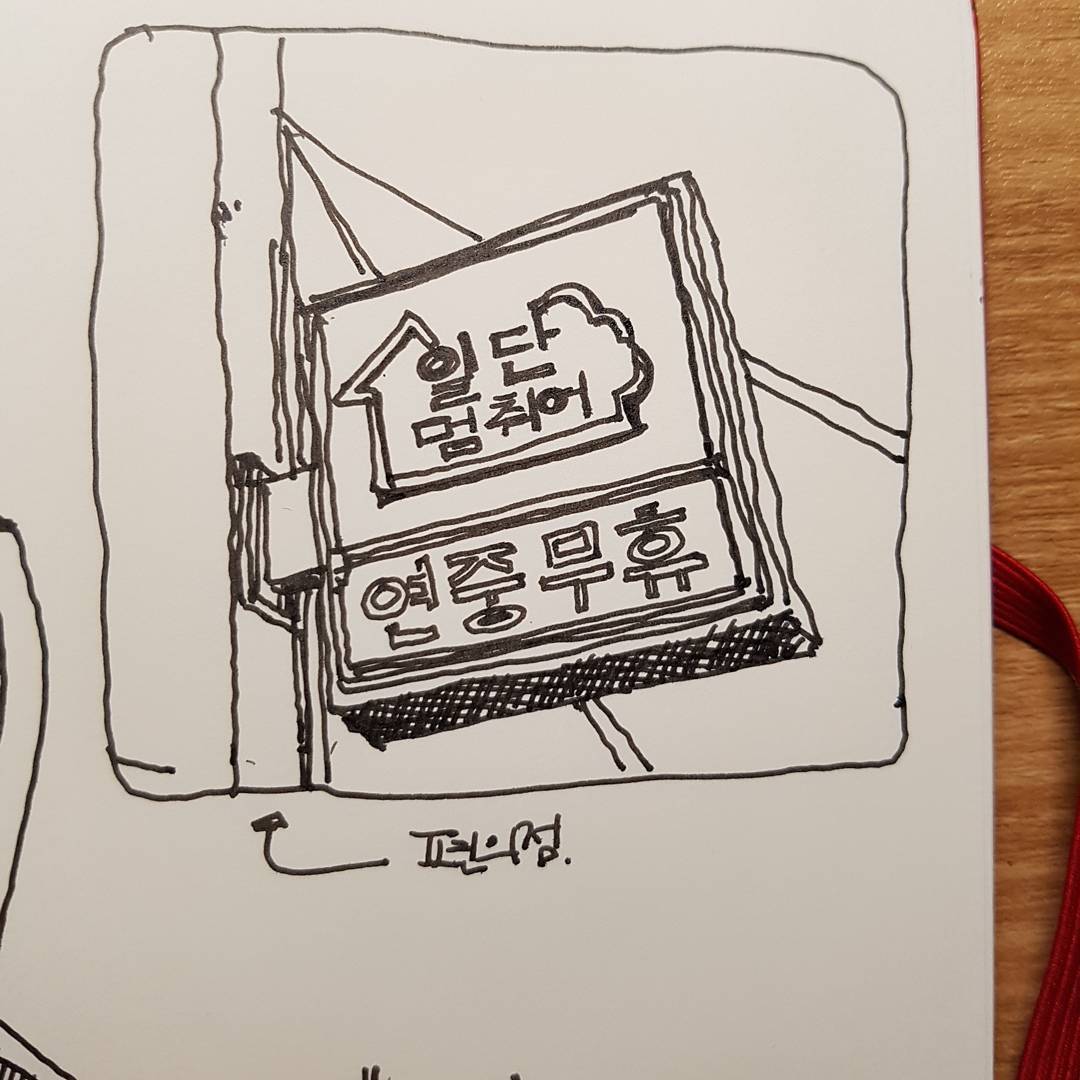 일단
멈춰어
연중무휴
편의점.